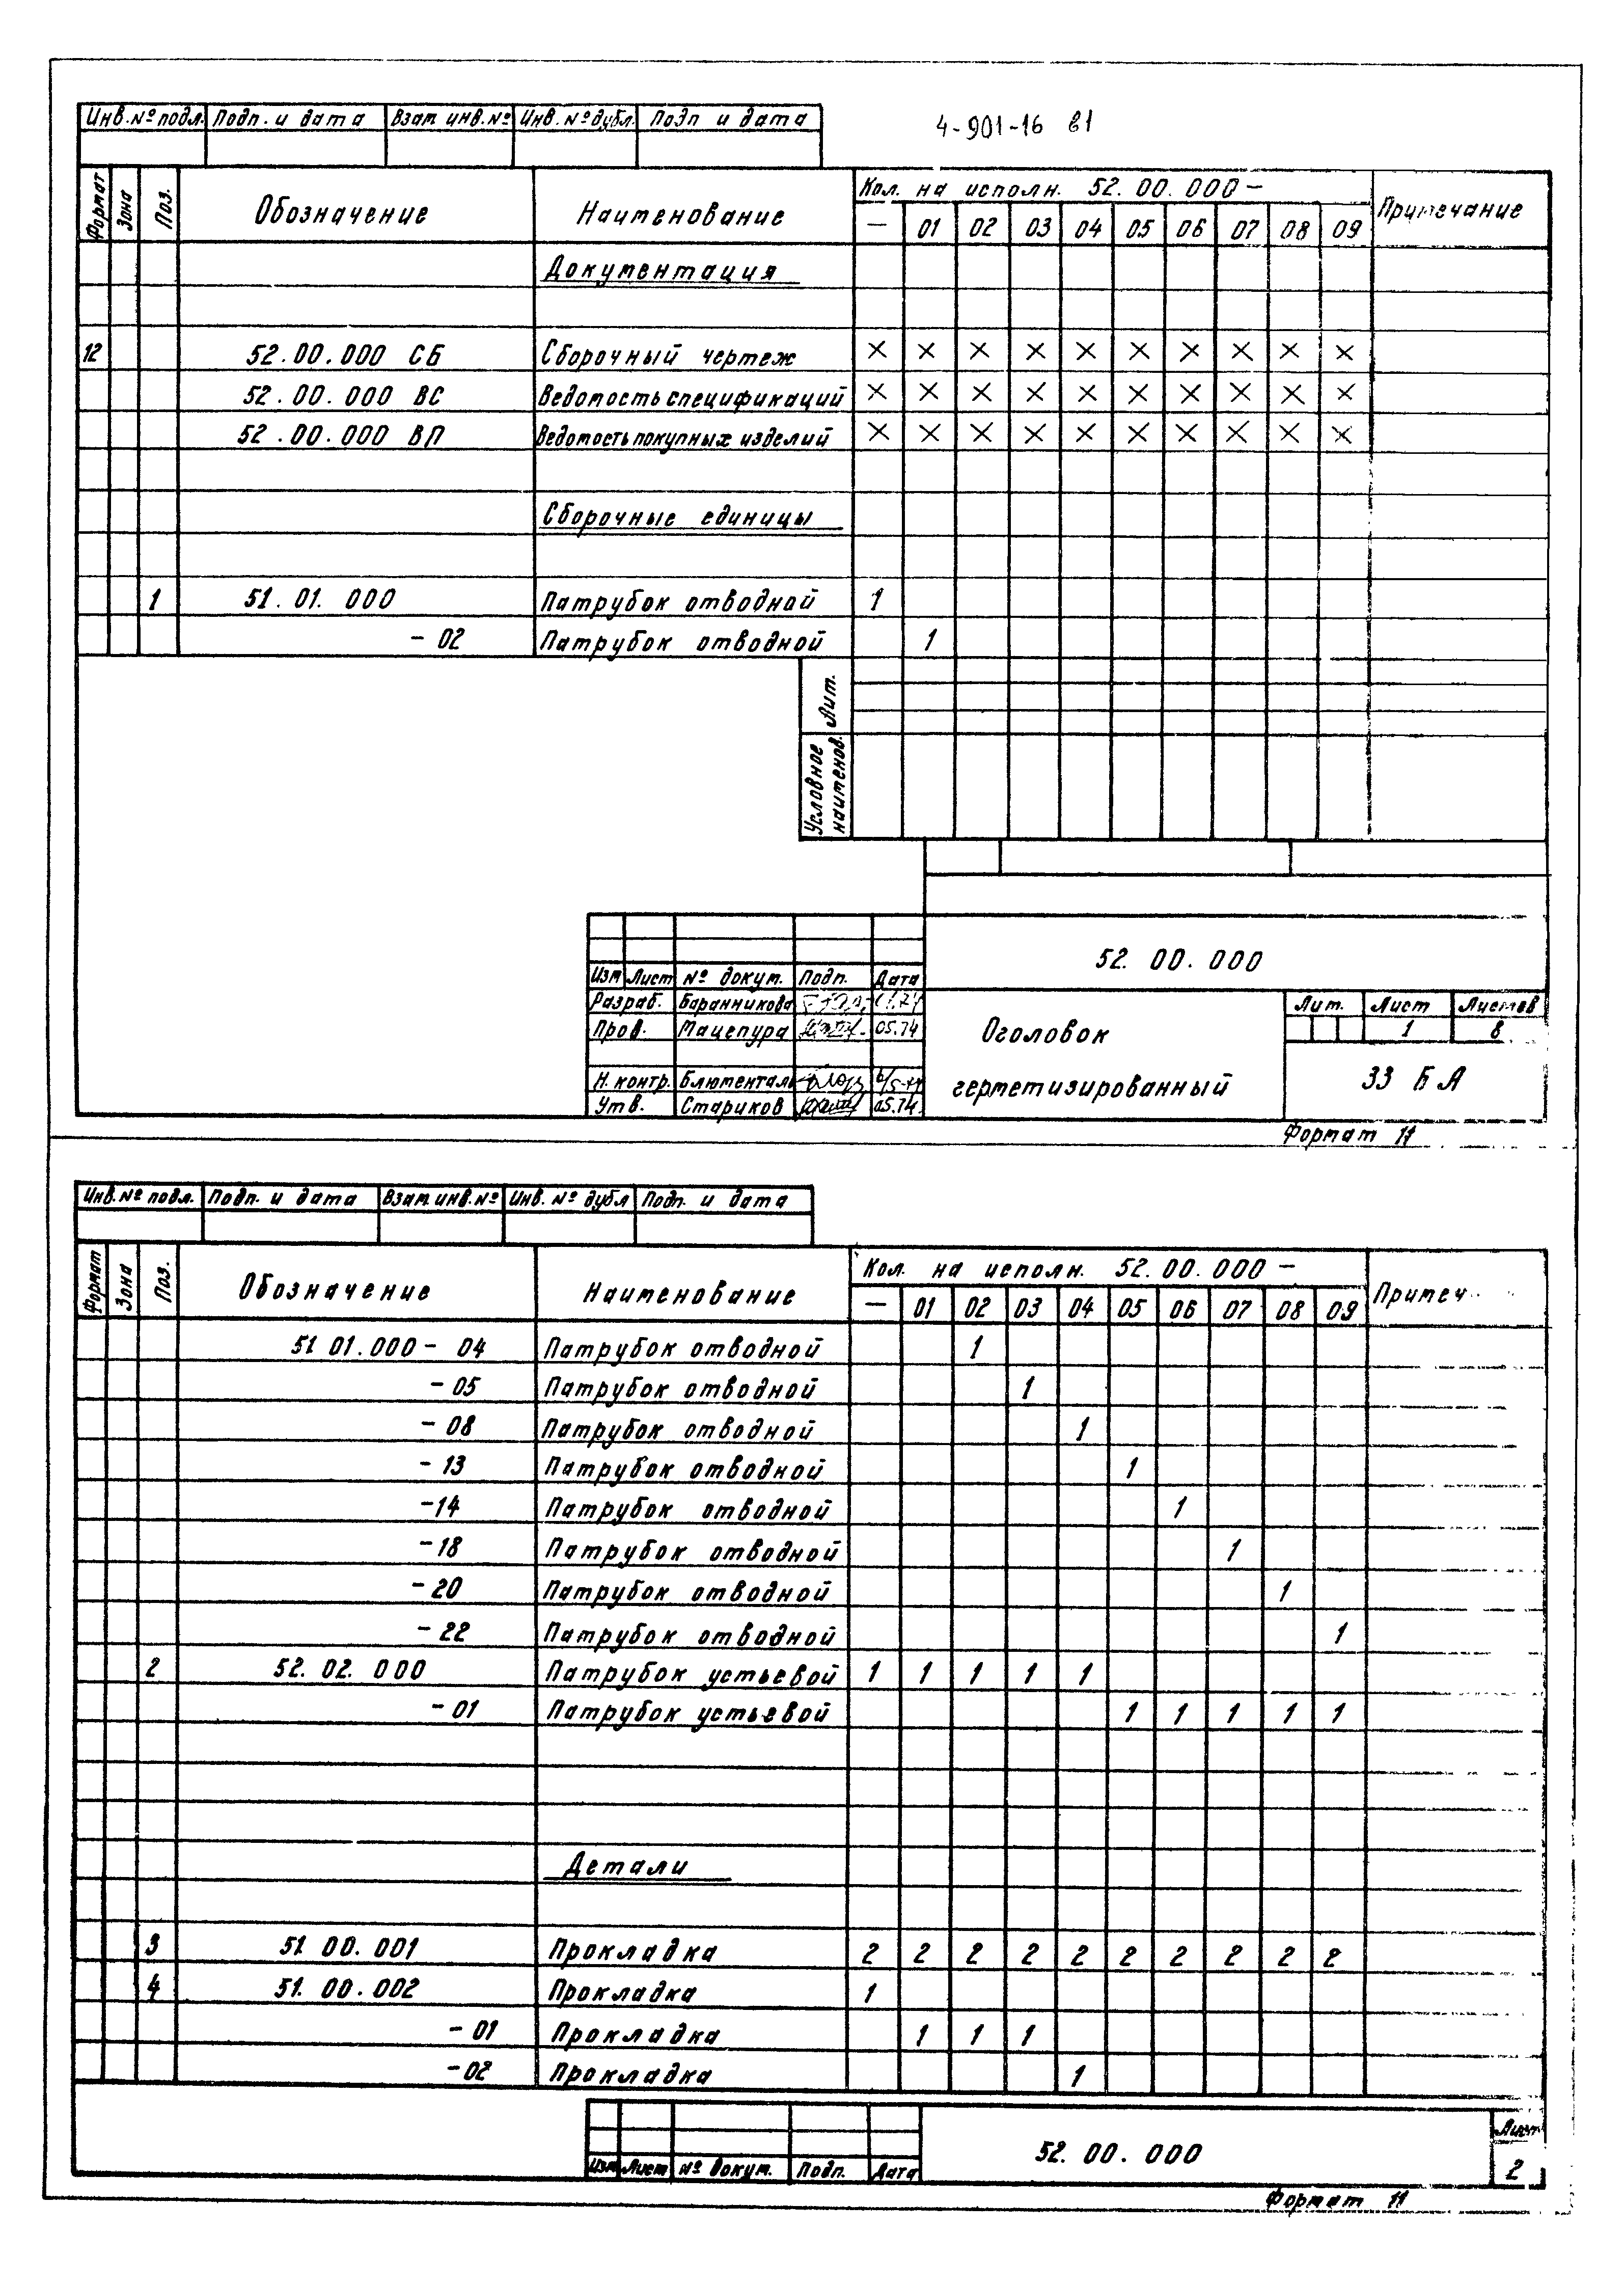 Инв.№ подл. Подп. и дата Взам инв.№ Инв.№ дубл. Подп и дата
4-901-16 в1
Формат Зона Поз. Обозначение Наименование Кол. на исполн. 52.00.000 — Примечание
— 01 02 03 04 05 06 07 08 09
Документация
12 52.00.000 СБ Сборочный чертеж × × × × × × × × × ×
52.00.000 ВС Ведомость спецификаций × × × × × × × × × ×
52.00.000 ВП Ведомость покупных изделий × × × × × × × × × ×
Сборочные единицы
1 51.01.000 Патрубок отводной 1
- 02 Патрубок отводной 1
Лит.
Условное наименов.
52.00.000
Изм Лист № докум. Подп. Дата
Разраб. Баранникова
Пров. Мацепура 05.74
Н. контр. Блюменталь
Утв. Стариков 05.74.
Оголовок
герметизированный
Лит. Лист Листов
1 8
33 БА
Формат 11
Инв.№ подл. Подп. и дата Взам инв.№ Инв.№ дубл Подп. и дата
Формат Зона Поз. Обозначение Наименование Кол. на исполн. 52.00.000 — Примеч
— 01 02 03 04 05 06 07 08 09
51 01.000 - 04 Патрубок отводной 1
- 05 Патрубок отводной 1
- 08 Патрубок отводной 1
- 13 Патрубок отводной 1
-14 Патрубок отводной 1
-18 Патрубок отводной 1
-20 Патрубок отводной 1
-22 Патрубок отводной 1
2 52.02.000 Патрубок устьевой 1 1 1 1 1
- 01 Патрубок устьевой 1 1 1 1 1
Детали
3 51 00.001 Прокладка 2 2 2 2 2 2 2 2 2 2
4 51.00.002 Прокладка 1
- 01 Прокладка 1 1 1
-02 Прокладка 1
Изм Лист № докум. Подп. Дата
52.00.000
Лист
2
Формат 11